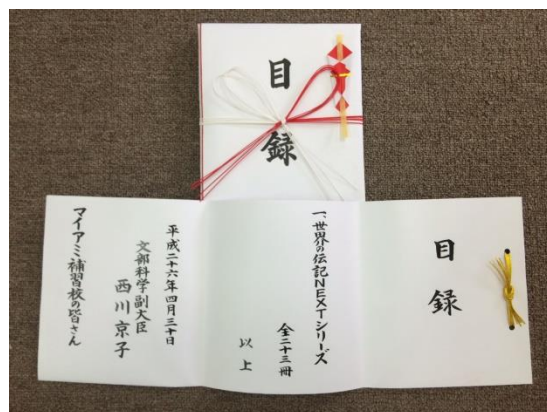 目録
目録
一、世界の伝記NEXTシリーズ
全二十三冊
以上
平成二十六年四月三十日
文部科学副大臣
西川京子
マイアミ補習校の皆さん